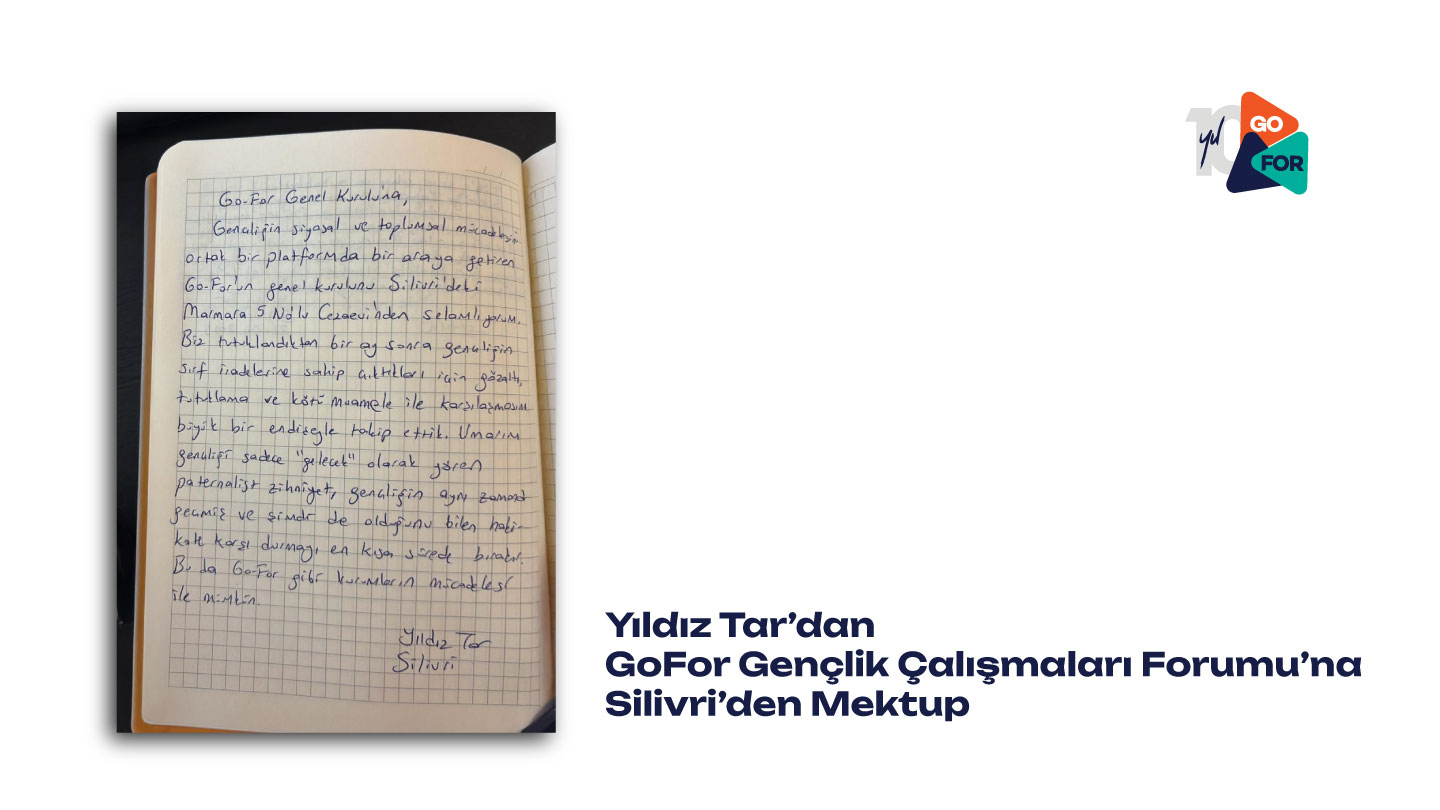 Go-For Genel Kurulu'na,
Gençliğin siyasal ve toplumsal mücadelesin
ortak bir platformda bir araya getiren
Go-For'un genel kurulunu Silivri'deki
Marmara 5 No'lu Cezaevi'nden selamlıyorum.
Biz tutuklandıktan bir ay sonra gençliğin
sırf iradelerine sahip çıktıkları için gözaltı,
tutuklama ve kötü muamele ile karşılaşmasını
büyük bir endişeyle takip ettik. Umarım
gençliği sadece "gelecek" olarak gören
paternalist zihniyet, gençliğin aynı zamand
geçmiş ve şimdi de olduğunu bilen haki-
kate karşı durmayı en kısa sürede bırakır.
Bu da Go-For gibi kurumların mücadelesi
ile mümkün.
Yıldız Tar
Silivri
10 yıl
GO
FOR
Yıldız Tar’dan
GoFor Gençlik Çalışmaları Forumu’na
Silivri’den Mektup